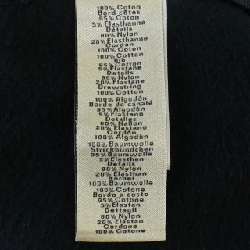 100% Coton
Bord côtes
95% Coton
5% Elasthanne
Détails
80% Nylon
20% Elasthanne
Cordon
100% Coton
95% Cotone
5% Elastane
Detalles
80% Nylon
20% Elastane
Drawstring
100% Cotton
100% Algodón
Borde de canalé
95% Algodón
5% Elastano
Detalles
80% Nailon
20% Elastano
Cordón
100% Algodón
100% Baumwolle
Strickbündchen
95% Baumwolle
5% Elasthan
Details
80% Nylon
20% Elasthan
100% Baumwolle
100% Cotone
Bordo a coste
95% Cotone
5% Elastan
Dettagli
80% Nylon
20% Elastan
Cordone
100% Cotone